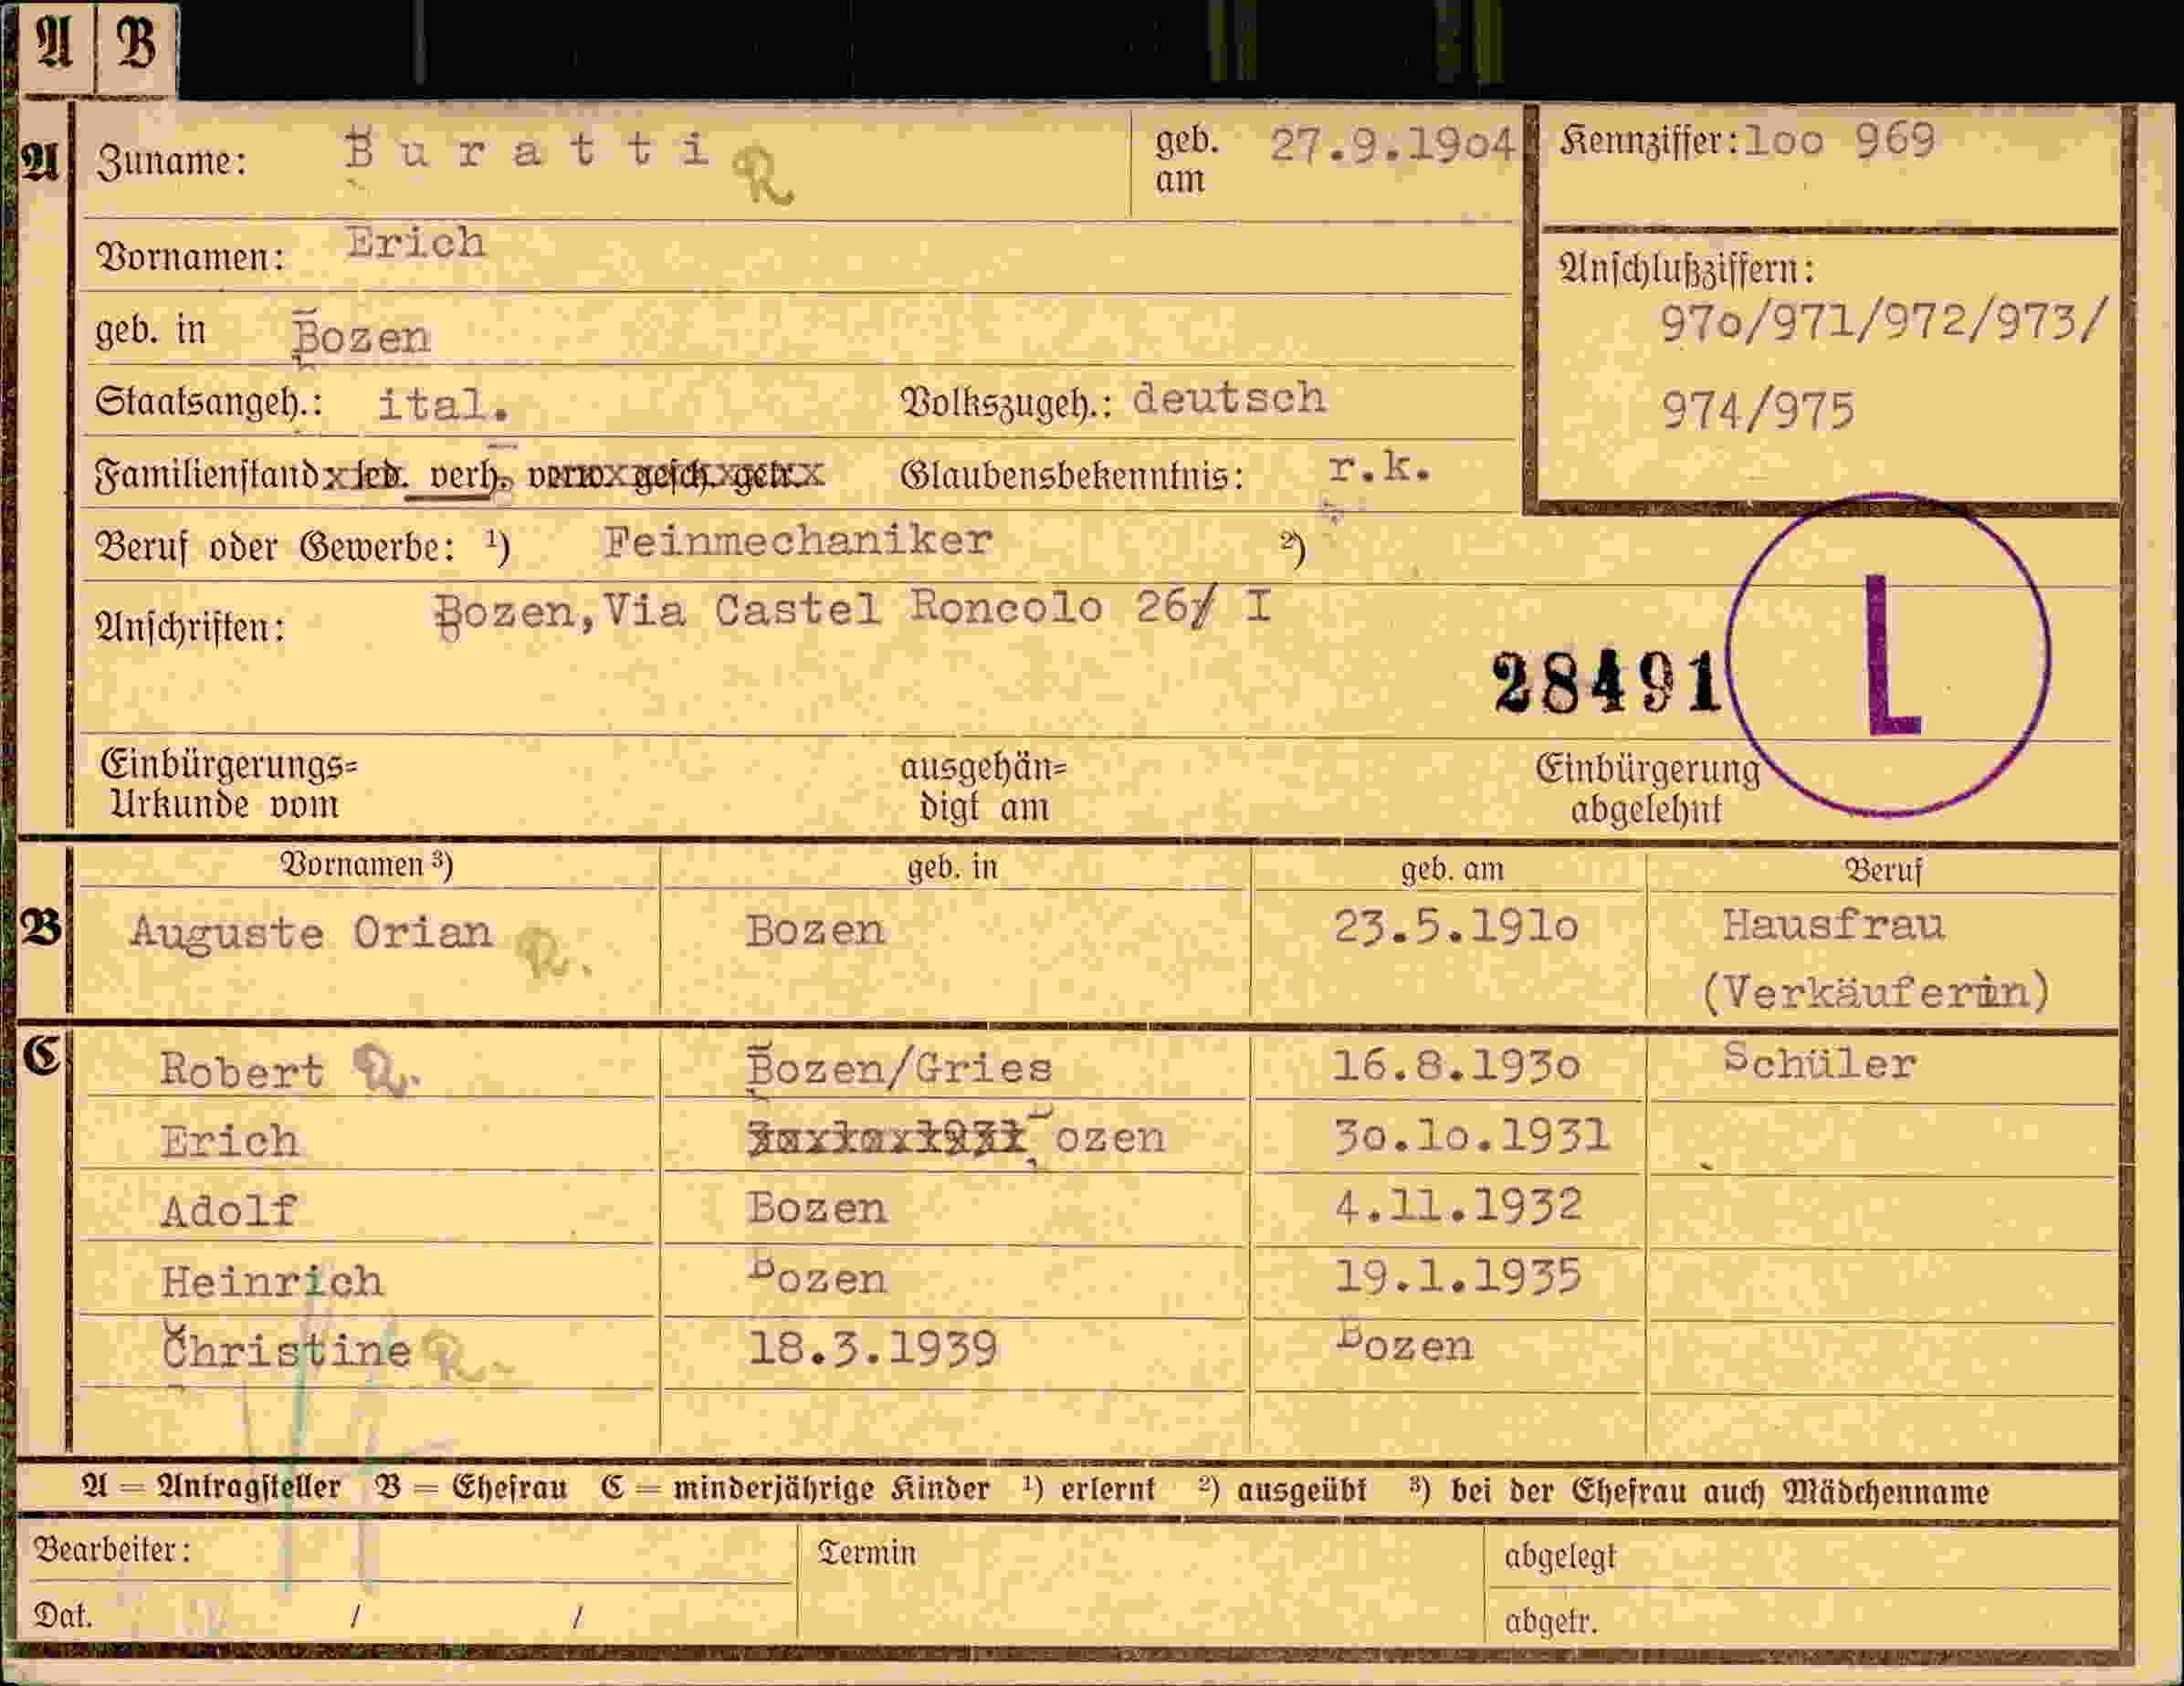 A B
A Zuname: Buratti R geb. am 27.9.19o4 Kennziffer: loo 969
Vornamen: Erich
Anschlußziffern:
97o/971/972/973/
974/975
geb. in Bozen
Staatsangeh.: ital. Volkszugeh.: deutsch
Familienstand led. verh. verw. gesch. getr. Glaubensbekenntnis: r.k.
Beruf oder Gewerbe: ¹) Feinmechaniker ²)
Anschriften: Bozen, Via Castel Roncolo 26/ I
28491 L
Einbürgerungs= Urkunde vom ausgehän= digt am Einbürgerung abgelehnt
Vornamen ³) geb. in geb. am Beruf
B Auguste Orian R. Bozen 23.5.191o Hausfrau
(Verkäuferin)
C Robert R. Bozen/Gries 16.8.193o Schüler
Erich Bozen 3o.lo.1931
Adolf Bozen 4.11.1932
Heinrich Bozen 19.1.1935
Christine R. 18.3.1939 Bozen
A = Antragsteller B = Ehefrau C = minderjährige Kinder ¹) erlernt ²) ausgeübt ³) bei der Ehefrau auch Mädchenname
Bearbeiter: Termin abgelegt
Dat. / / abgetr.